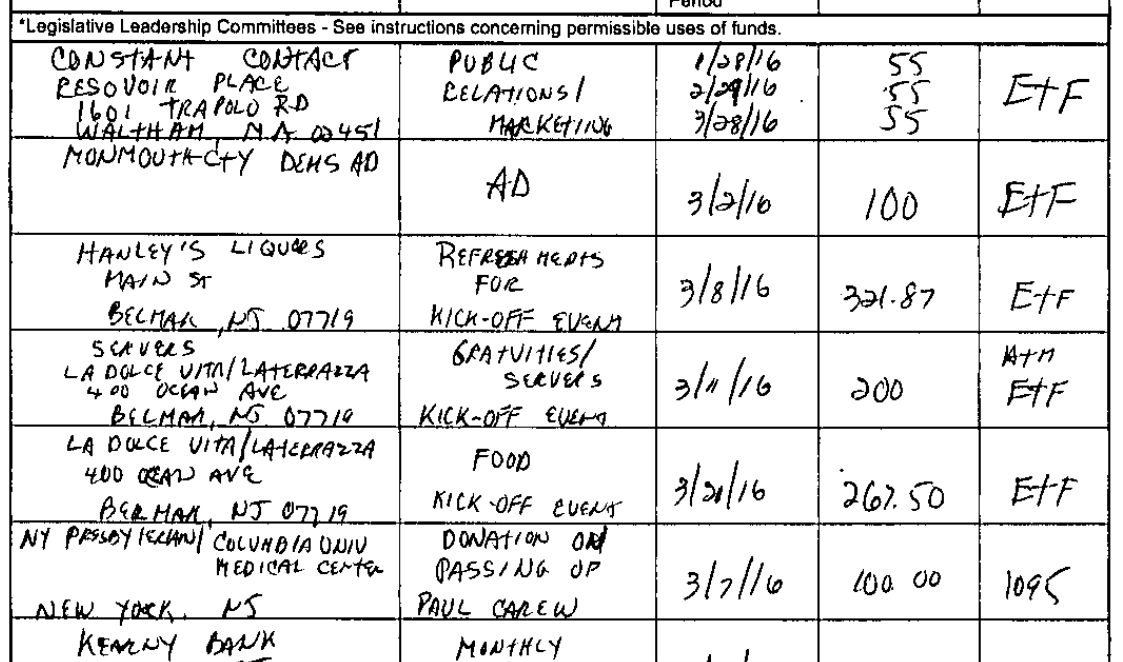 Period
*Legislative Leadership Committees - See instructions concerning permissible uses of funds.
CONSTANT CONTACT
RESOVOIR PLACE
1601 TRAPOLO RD
WALTHAM, MA 02451
PUBLIC
RELATIONS/
MARKETING
1/28/16
2/29/16
3/28/16
55
55
55
EtF
MONMOUTH CTY DEMS AD
AD
3/2/16
100
EtF
HANLEY'S LIQUORS
MAIN ST
BELMAR, NJ 07719
REFRESHMENTS
FOR
KICK-OFF EVENT
3/8/16
321.87
EtF
SERVERS
LA DOLCE VITA/LATERRAZZA
400 OCEAN AVE
BELMAR, NJ 07719
GRATUITIES/
SERVERS
KICK-OFF EVENT
3/11/16
200
ATM
EtF
LA DOLCE VITA/LATERRAZZA
400 OCEAN AVE
BELMAR, NJ 07719
FOOD
KICK-OFF EVENT
3/21/16
267.50
EtF
NY PRESBYTERIAN/ COLUMBIA UNIV
MEDICAL CENTER
NEW YORK, NJ
DONATION ON
PASSING OF
PAUL CAREW
3/7/16
100.00
1095
KEARNY BANK
MONTHLY